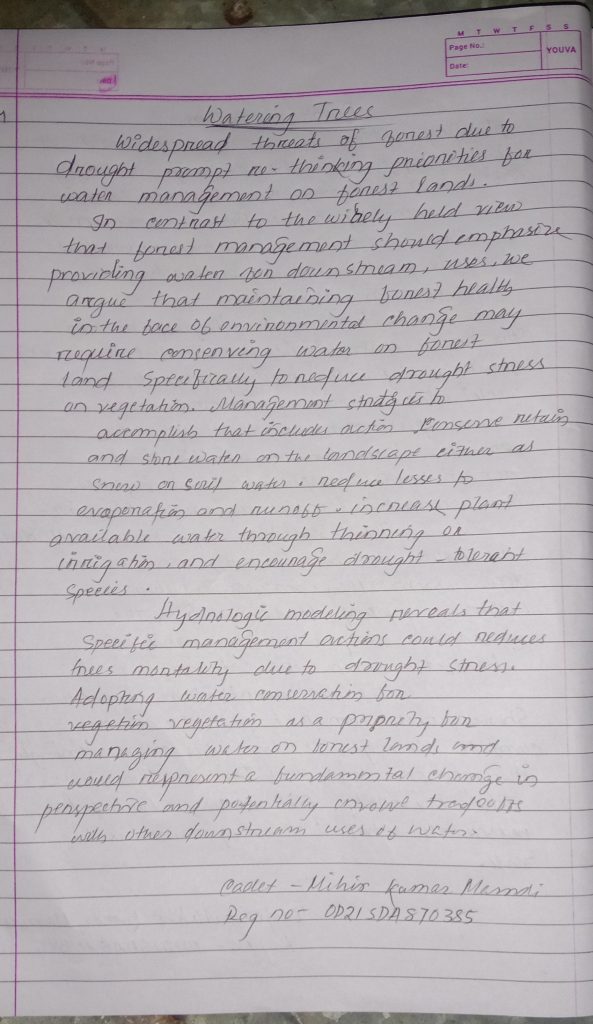 M T W T F S S
Page No.:
Date:
YOUVA
Watering Trees
Widespread threats of forest due to
drought prompt re-thinking priorities for
water management on forest lands.
In contrast to the widely held view
that forest management should emphasize
providing water for downstream, uses, we
argue that maintaining forest health
in the face of environmental change may
require conserving water on forest
land specifically to reduce drought stress
on vegetation. Management stratgies to
accomplish that includes action conserve retain
and store water on the landscape either as
snow or soil water. reduce losses to
evaporation and runoff. increase plant
available water through thinning or
irrigation, and encourage drought - tolerant
species.
Hydrologic modeling reveals that
specific management actions could reduces
trees mortality due to drought stress.
Adopting water conservation for
vegetion vegetation as a propriety for
managing water on forest lands and
would respresent a fundamental change in
perspective and potentially involve tradeoffs
with other downstream uses of water.
Cadet - Mihir Kumar Memdi
Reg no - OD21SDA870385